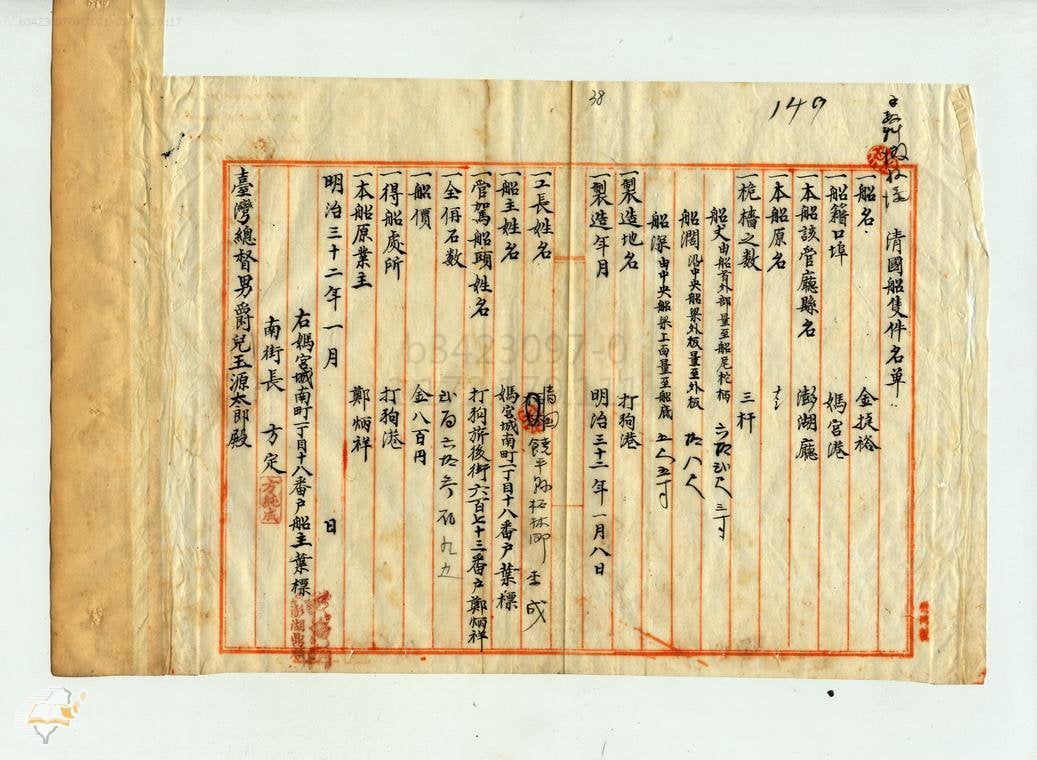 b3423097-0 2021-03-08 20:17
149
38
清國船隻件名單
一船名 金捷裕
一船籍口埠 媽宮港
一本船該管廳縣名 澎湖廳
一本船原名
一桅檣之数 三杆
船丈由船首外部量至船尾柁柄 六拾弐尺三寸
船濶沿中央船梁外板量至外板 拾八尺
船深由中央船梁上面量至船底 五尺五寸
一製造地名 打狗港
一製造年月 明治三十二年一月八日
一工長姓名 清国饒平縣 李成
一船主姓名 媽宮城南町一丁目十八番户葉標
一管駕船頭姓名 打狗旂後街六百七十三番户鄭炳祥
一全倂石数 弐百六拾 石九五
一船價 金八百円
一得船處所 打狗港
一本船原業主 鄭炳祥
明治三十二年一月 日
右媽宮城南町一丁目十八番户船主葉標
南街長 方定
臺灣總督男爵兒玉源太郎殿
b3423097-0